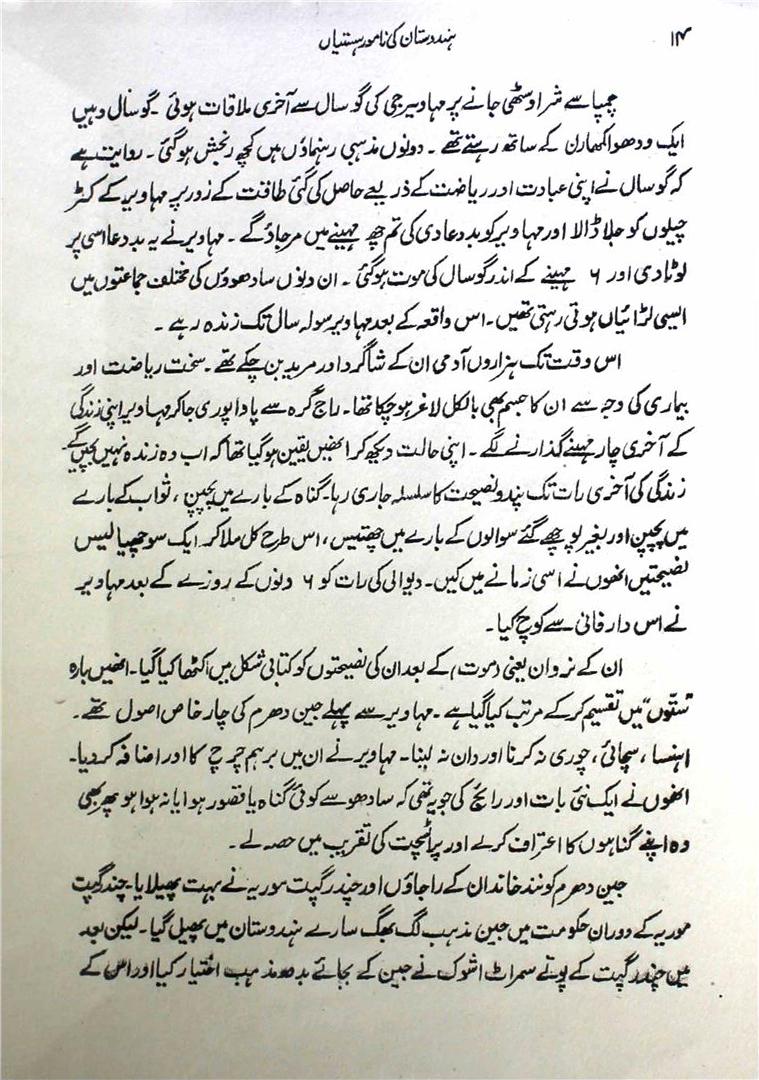 ۱۴
ہندوستان کی نامور ہستیاں
چمپا سے شراوستھی جانے پر مہاویر جی کی گوسال سے آخری ملاقات ہوئی ۔ گوسال وہیں
ایک ودھوا کمھارن کے ساتھ رہتے تھے ۔ دونوں مذہبی رہنماؤں میں کچھ رنجش ہوگئی ۔ روایت ہے
کہ گوسال نے اپنی عبادت اور ریاضت کے ذریعے حاصل کی گئی طاقت کے زور پر مہاویر کے کٹر
چیلوں کو جلا ڈالا اور مہاویر کو بددعا دی کی تم چھ مہینے میں مرجاؤ گے ۔ مہاویر نے یہ بددعا اسی پر
لوٹا دی اور ۶ مہینے کے اندر گوسال کی موت ہوگئی ۔ ان دنوں سادھوؤں کی مختلف جماعتوں میں
ایسی لڑائیاں ہوتی رہتی تھیں ۔ اس واقعہ کے بعد مہاویر سولہ سال تک زندہ رہے ۔
اس وقت تک ہزاروں آدمی ان کے شاگرد اور مرید بن چکے تھے ۔ سخت ریاضت اور
بیماری کی وجہ سے ان کا جسم بھی بالکل لاغر ہوچکا تھا ۔ راج گرہ سے پاوا پوری جاکر مہاویر اپنی زندگی
کے آخری چار مہینے گذارنے لگے ۔ اپنی حالت دیکھ کر انھیں یقین ہوگیا تھا کہ اب وہ زندہ نہیں بچیں گے ۔
زندگی کی آخری رات تک پند و نصیحت کا سلسلہ جاری رہا ۔ گناہ کے بارے میں پچپن ، ثواب کے بارے
میں پچپن اور بغیر پوچھے گئے سوالوں کے بارے میں چھتیس ، اس طرح کل ملاکر ایک سو چھیالیس
نصیحتیں انھوں نے اسی زمانے میں کیں ۔ دیوالی کی رات کو ۶ دنوں کے روزے کے بعد مہاویر
نے اس دار فانی سے کوچ کیا ۔
ان کے نروان یعنی (موت) کے بعد ان کی نصیحتوں کو کتابی شکل میں اکٹھا کیا گیا ۔ انھیں بارہ
”ستّوں“ میں تقسیم کرکے مرتب کیا گیا ہے ۔ مہاویر سے پہلے جین دھرم کی چار خاص اصول تھے ۔
اہنسا ، سچائی ، چوری نہ کرنا اور دان نہ لینا ۔ مہاویر نے ان میں برہم چرج کا اور اضافہ کردیا ۔
انھوں نے ایک نئی بات اور رائج کی جو یہ تھی کہ سادھو سے کوئی گناہ یا قصور ہوا یا نہ ہوا ہو پھر بھی
وہ اپنے گناہوں کا اعتراف کرلے اور پرائشچت کی تقریب میں حصہ لے ۔
جین دھرم کو نند خاندان کے راجاؤں اور چندر گپت موریہ نے بہت پھیلایا ۔ چندر گپت
موریہ کے دوران حکومت میں جین مذہب لگ بھگ سارے ہندوستان میں پھیل گیا ۔ لیکن بعد
میں چندر گپت کے پوتے سمراٹ اشوک نے جین کے بجائے بدھ مذہب اختیار کیا اور اس کے